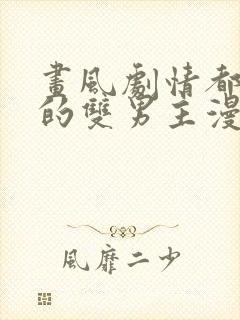 畫風劇情都
的雙男主漫
風靡二少